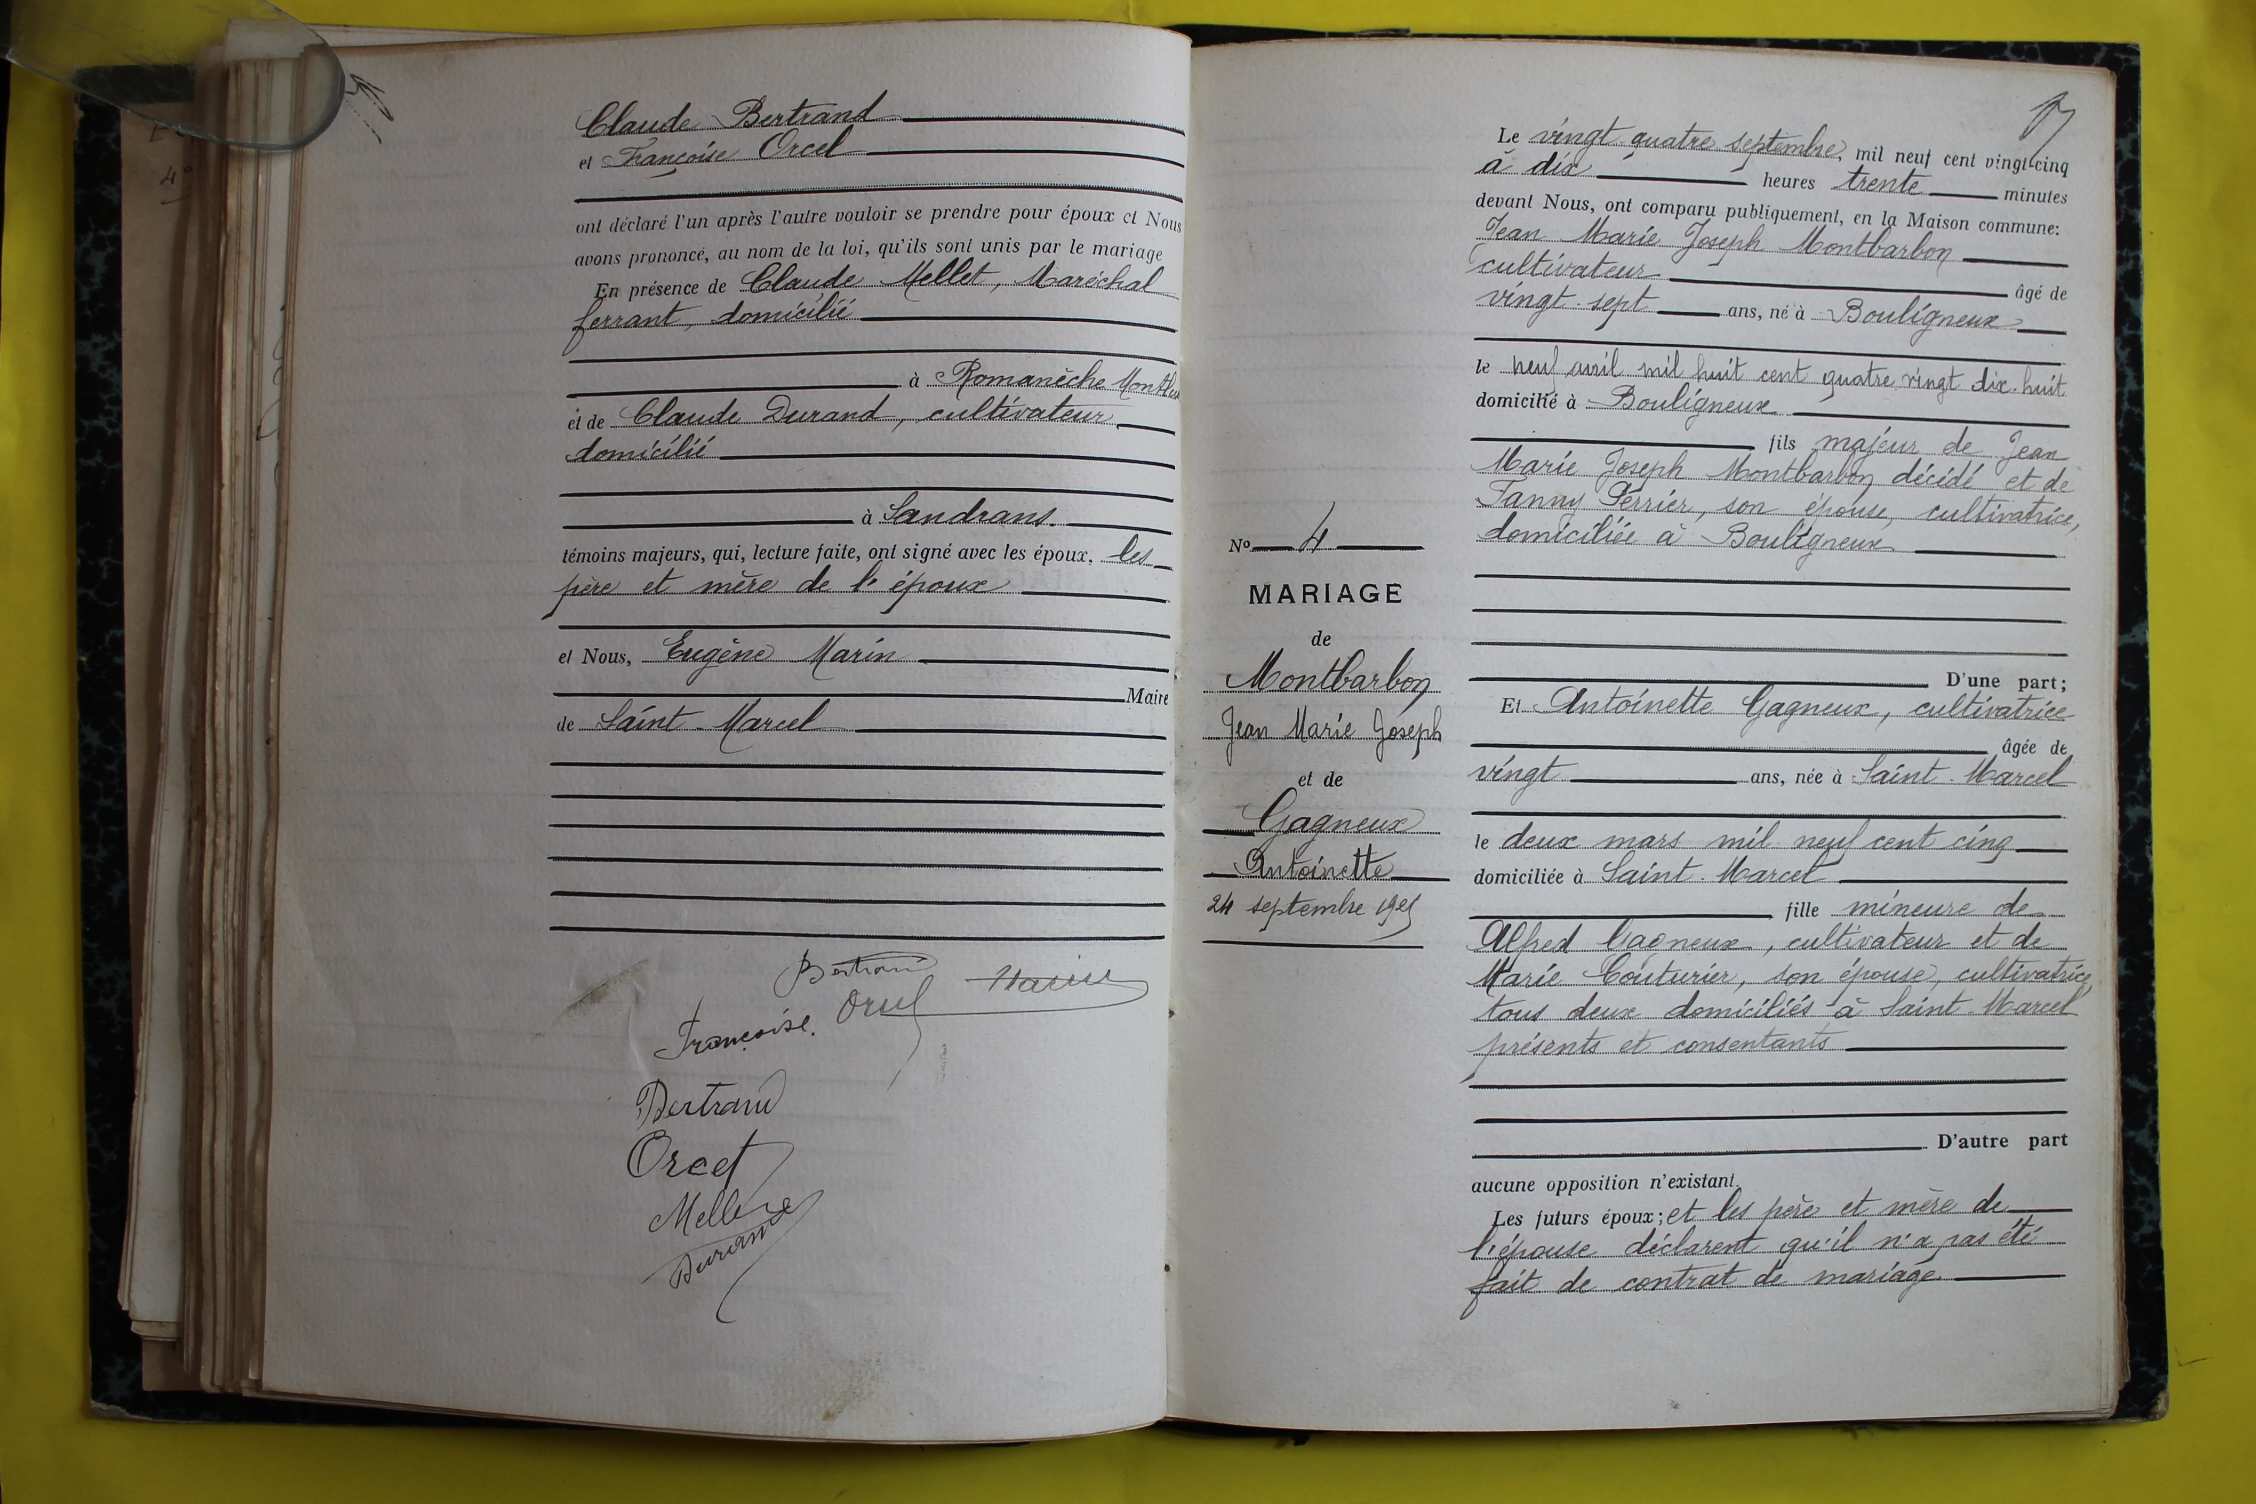 Claude Bertrand
et Françoise Orcel
ont déclaré l'un après l'autre vouloir se prendre pour époux et Nous
avons prononcé, au nom de la loi, qu'ils sont unis par le mariage
En présence de Claude Mellet, Maréchal
ferrant, domicilié
à Romanèche Montluel
et de Claude Durand, cultivateur
domicilié
à Sandrans.
témoins majeurs, qui, lecture faite, ont signé avec les époux, les
père et mère de l'époux
et Nous, Eugène Marin
Maire
de Saint-Marcel
Bertrand
Marin
Françoise. Orcel
Bertrand
Orcet
Mellet
Durand
No 4
MARIAGE
de
Montbarbon
Jean Marie Joseph
et de
Gagneux
Antoinette
24 septembre 1925
Le vingt-quatre septembre, mil neuf cent vingt-cinq
à dix heures trente minutes
devant Nous, ont comparu publiquement, en la Maison commune:
Jean Marie Joseph Montbarbon
cultivateur âgé de
vingt-sept ans, né à Bouligneux
le neuf avril mil huit cent quatre vingt dix-huit
domicilié à Bouligneux
fils majeur de Jean
Marie Joseph Montbarbon décidé et de
Fanny Perrier, son épouse, cultivatrice,
domiciliée à Bouligneux
D'une part;
Et Antoinette Gagneux, cultivatrice
âgée de
vingt ans, née à Saint-Marcel
le deux mars mil neuf cent cinq
domiciliée à Saint-Marcel
fille mineure de
Alfred Gagneux, cultivateur et de
Marie Couturier, son épouse, cultivatrice,
tous deux domiciliés à Saint-Marcel
présents et consentants
D'autre part
aucune opposition n'existant.
Les futurs époux; et les père et mère de
l'épouse déclarent qu'il n'a pas été
fait de contrat de mariage.